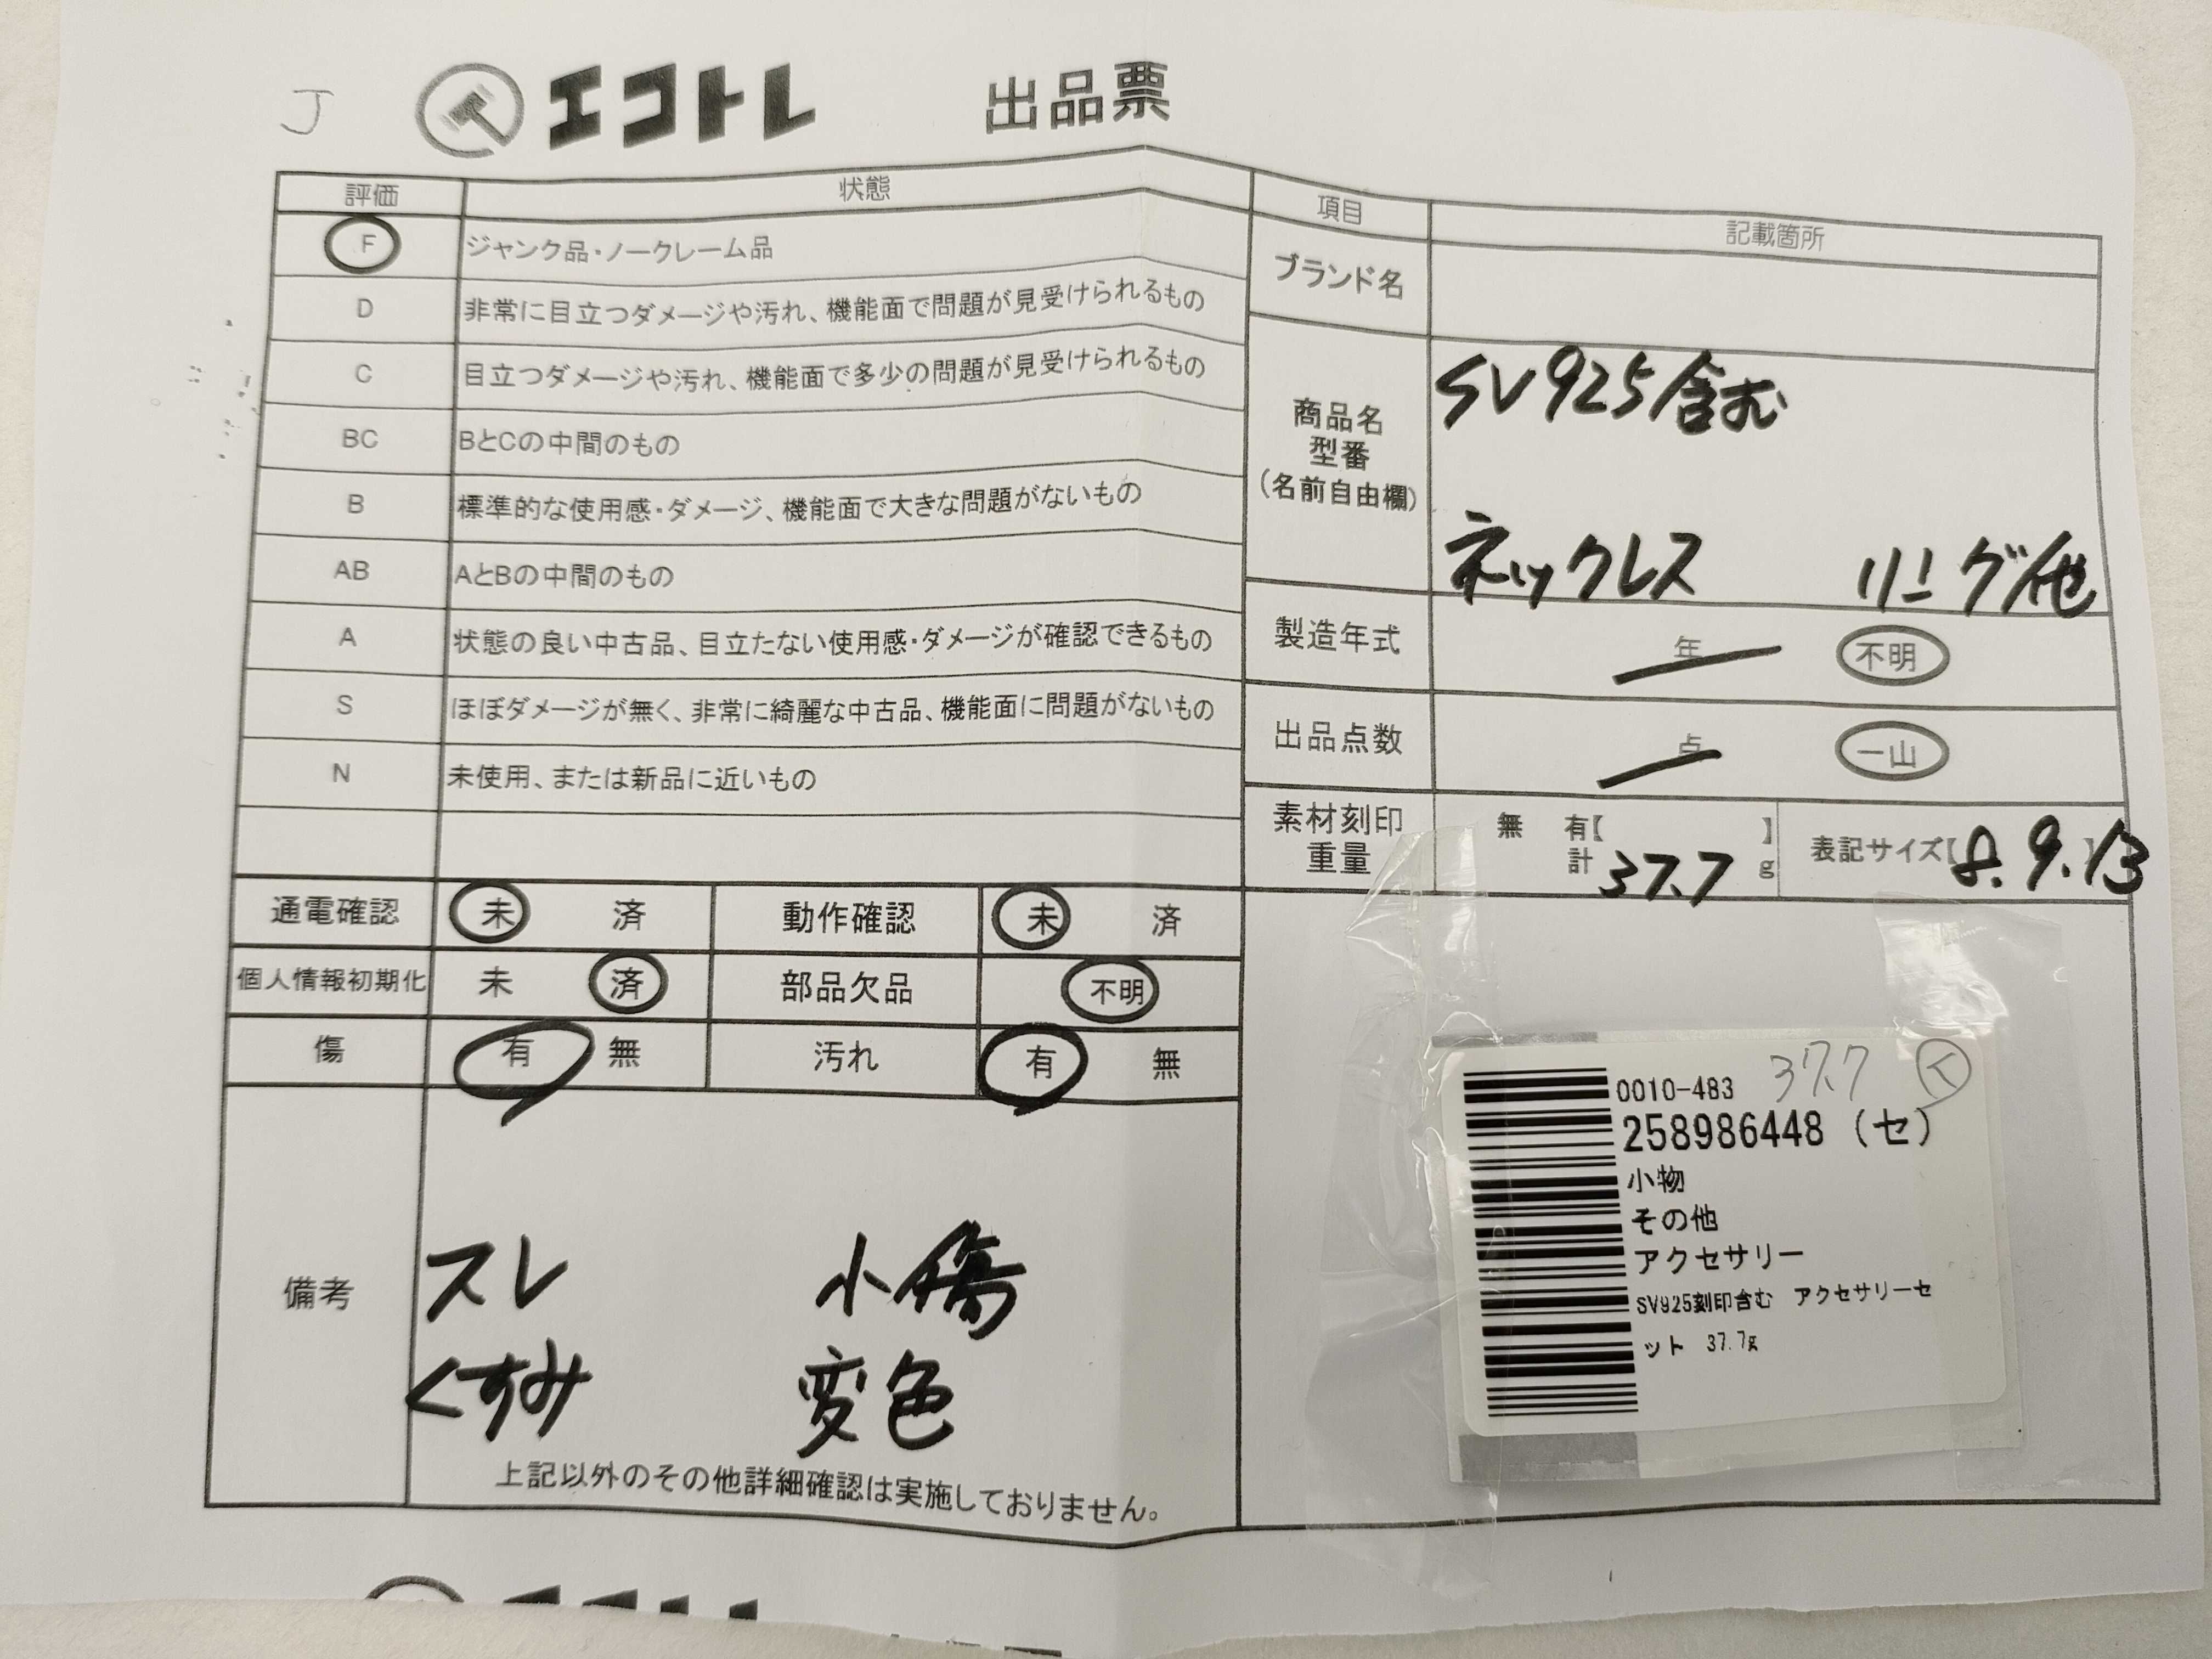 J エコトレ 出品票
評価 状態
F ジャンク品・ノークレーム品
D 非常に目立つダメージや汚れ、機能面で問題が見受けられるもの
C 目立つダメージや汚れ、機能面で多少の問題が見受けられるもの
BC BとCの中間のもの
B 標準的な使用感・ダメージ、機能面で大きな問題がないもの
AB AとBの中間のもの
A 状態の良い中古品、目立たない使用感・ダメージが確認できるもの
S ほぼダメージが無く、非常に綺麗な中古品、機能面に問題がないもの
N 未使用、または新品に近いもの
項目 記載箇所
ブランド名
商品名
型番
(名前自由欄)
SV925含む
ネックレス リング他
製造年式 年 不明
出品点数 点 一山
素材刻印
重量
無 有【 】
計 37.7 g
表記サイズ【8.9.13】
通電確認 未 済 動作確認 未 済
個人情報初期化 未 済 部品欠品 不明
傷 有 無 汚れ 有 無
備考
スレ 小傷
くすみ 変色
上記以外のその他詳細確認は実施しておりません。
0010-483 37.7 く
258986448 (セ)
小物
その他
アクセサリー
SV925刻印含む アクセサリーセ
ット 37.7g